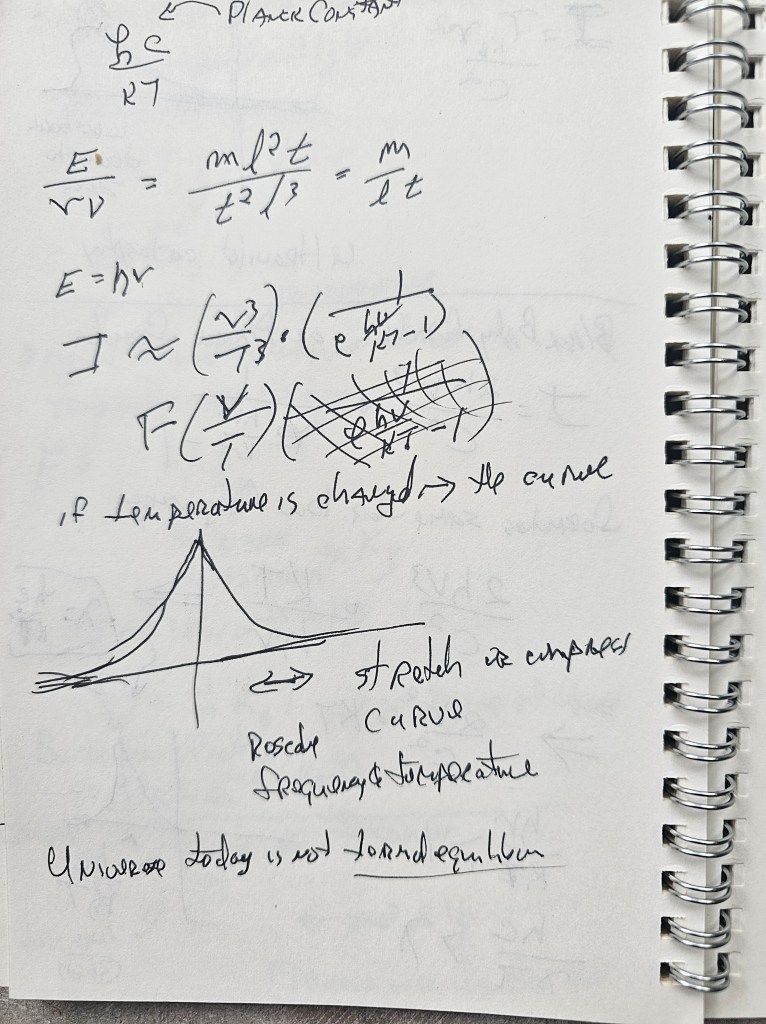 ← PLANCK CONSTANT
hc/kT
E/νν = ml²t/t²l³ = m/lt
E = hν
I ≈ (ν³/T³) · (1/e^(hν/kT) - 1)
F(ν/T)
if temperature is changed → the curve
↔ stretch or compress
curve
frequency & temperature
Universe today is not